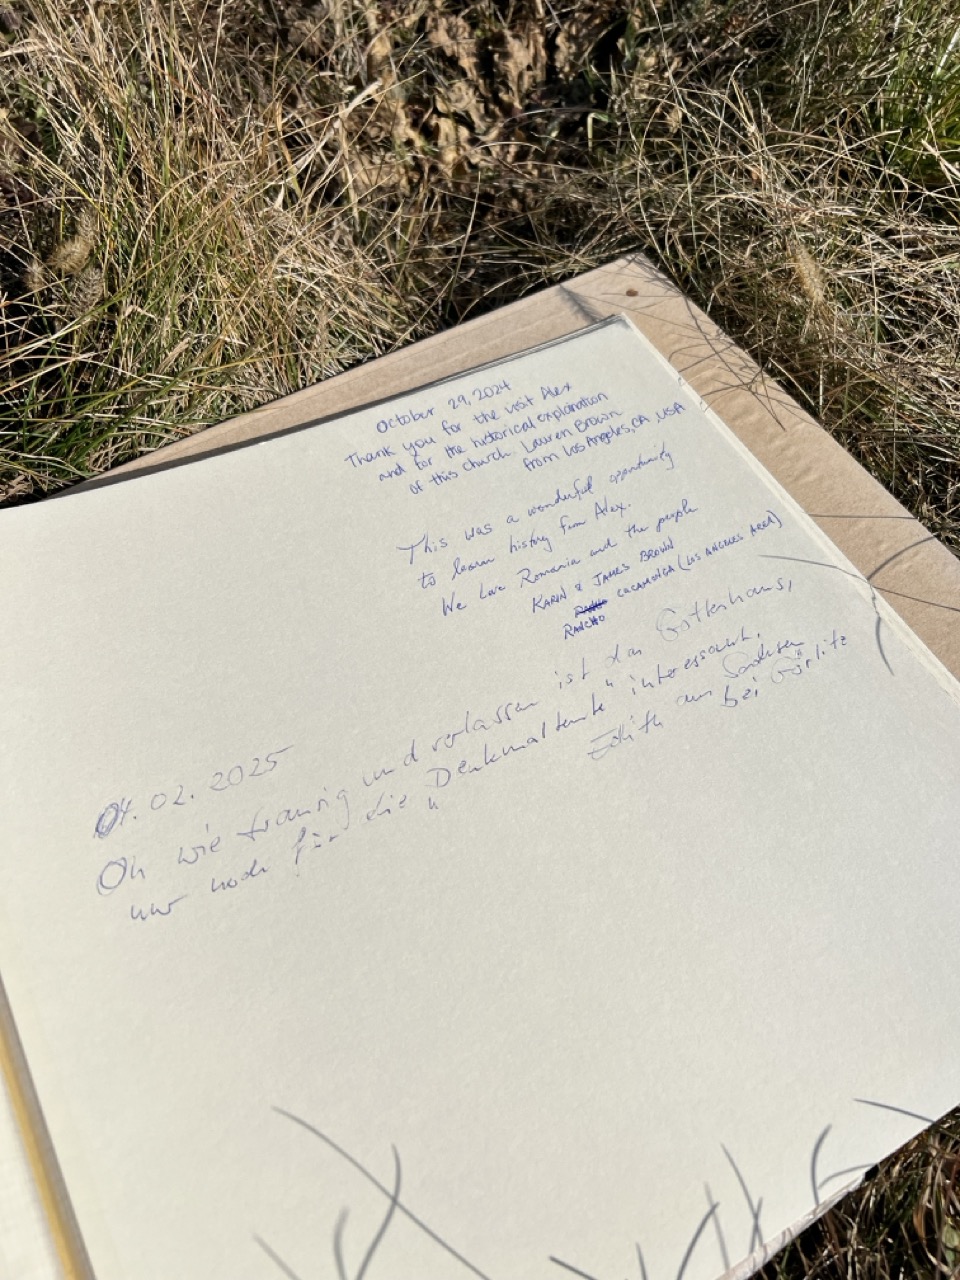 October 29, 2024
Thank you for the visit Alex
and for the historical explanation
of this church. Lauren Brown
from Los Angeles, CA, USA
This was a wonderful opportunity
to learn history from Alex.
We Love Romania and the people
KARIN & JAMES BROWN
CUCAMONGA (LOS ANGELES AREA)
RANCHO
04.02.2025
Oh wie traurig und verlassen ist das Gotteshaus,
nur noch für die "Denkmalleute" interessant.
Edith aus Sachsen
bei Görlitz